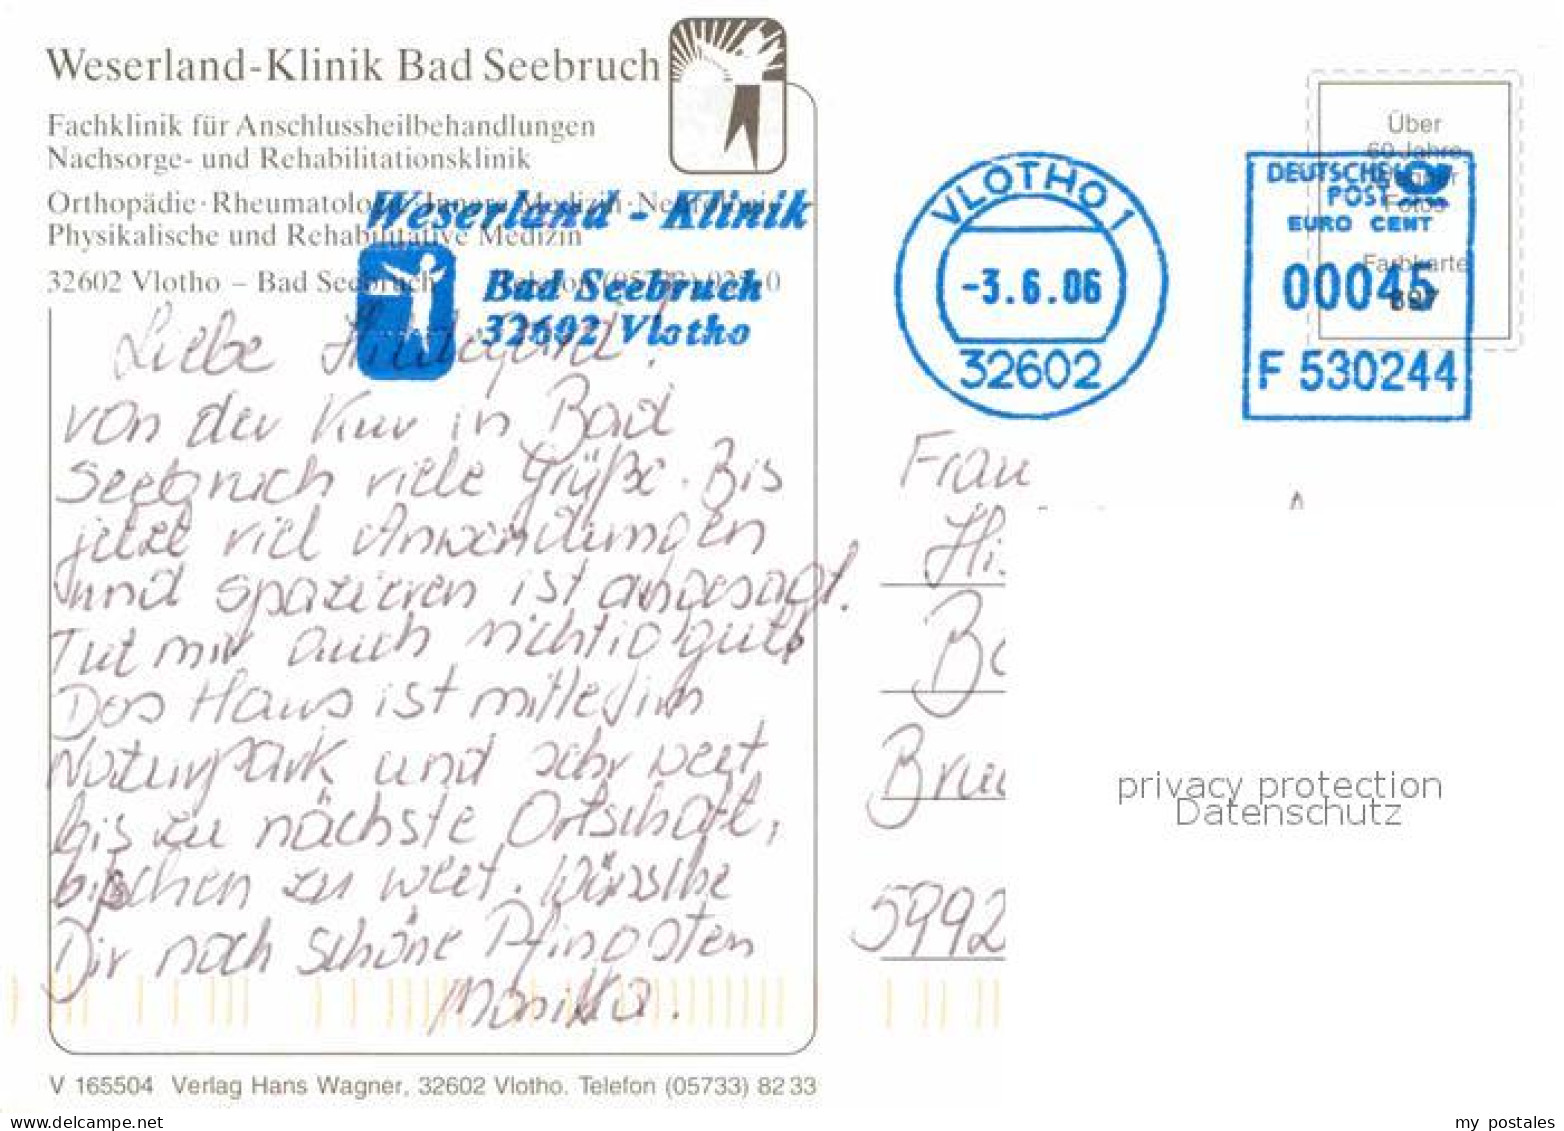 Weserland-Klinik Bad Seebruch
Fachklinik für Anschlussheilbehandlungen
Nachsorge- und Rehabilitationsklinik
Orthopädie·Rheumatologie·Innere Medizin·Neurologie
Physikalische und Rehabilitative Medizin
32602 Vlotho – Bad Seebruch Telefon (05733)
Weserland - Klinik
Bad Seebruch
32602 Vlotho
Liebe Hildegard!
von der Kur in Bad
Seebruch viele Grüße. Bis
jetzt viel Anwendungen
und spazieren ist angesagt.
Tut mir auch richtig gut
Das Haus ist mitten im
Naturpark und sehr weit
bis zu nächste Ortschaft,
bischen zu weit. Wünsche
Dir noch schöne Pfingsten
Monika.
V 165504 Verlag Hans Wagner, 32602 Vlotho. Telefon (05733) 82 33
VLOTHO 1
-3.6.06
32602
Über
60 Jahre
Fotos
Farbkarte
DEUTSCHE
POST
EURO CENT
00045
F 530244
Frau
Hi
Be
Bru
5992
privacy protection
Datenschutz
www.delcampe.net
my_postales